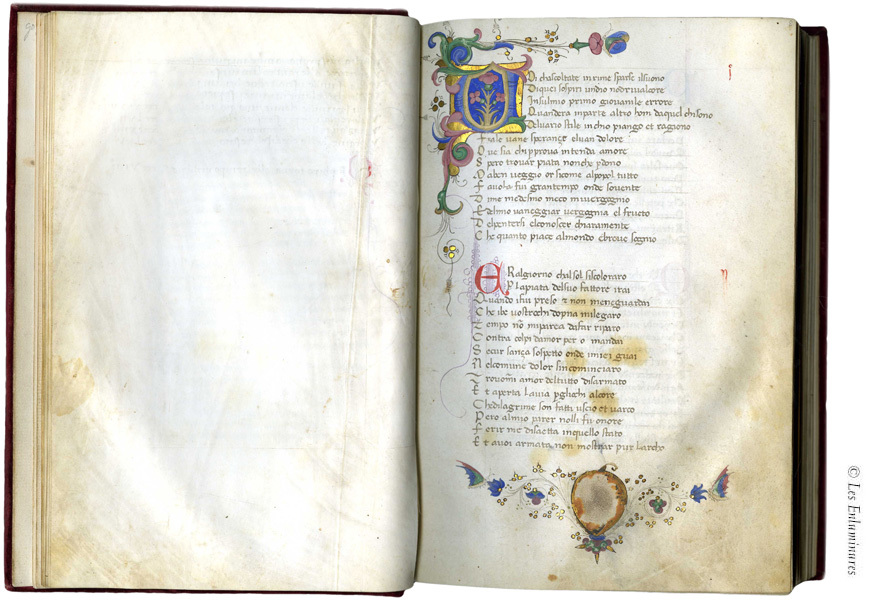 i
Oi chascoltate in rime sparse il suono
Di quei sospiri undio nodriva lcore
Insulmio primo giovanile errore
Quandera inparte altro hom daquel chisono
Deluario stile inchio piango et ragiono
Frale uane speranze eluan dolore
Oue sia chi pproua intenda amore
Spero trouar piata nonche pdono
Maben ueggio or sicome alpopol tutto
Fauola fui grantempo onde souente
Dime medesmo meco miuergogno
Edelmio uaneggiar uergognia el fructo
Elpentersi elconoscer chiaramente
Che quanto piace almondo e breue sogno
ij
ERalgiorno chalsol siscoloraro
Plapiata delsuo fattore irai
Quando ifui preso et non meneguardai
Che ibe uostrochi dopna milegaro
Tempo nõ miparea dafar riparo
Contra colpi damor pero mandai
Secur sança sospetto onde imiei guai
Nelcomune dolor sincominciaro
Trouomi amor deltutto disarmato
Et aperta lauia pgliochi alcore
Chedilagrime son fatti uscio et uarco
Pero almio parer nolli fu onore
Ferir me disaetta inquello stato
Et auoi armata non mostrar pur larcho
© Les Enluminures